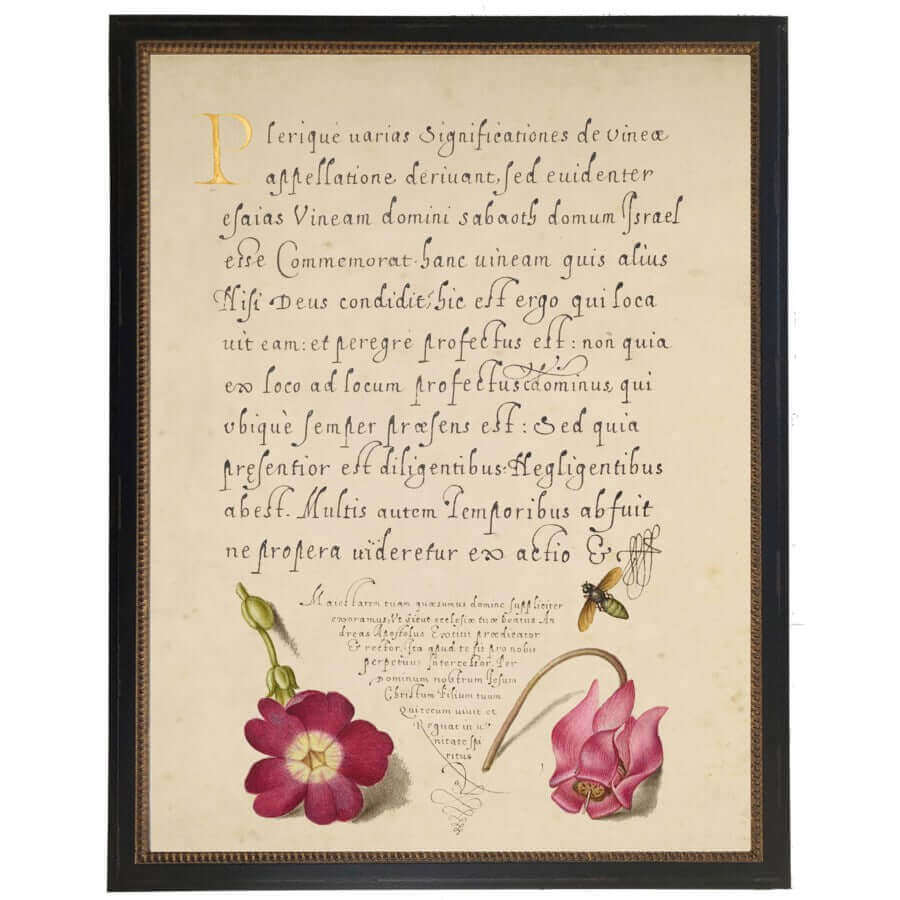 Plerique uarias Significationes de vineæ
appellatione deriuant, sed euidenter
esaias Vineam domini sabaoth domum Israel
esse Commemorat. hanc uineam quis alius
Nisi Deus condidit, hic est ergo qui loca
uit eam: et peregrè profectus est: non quia
ex loco ad locum profectus dominus, qui
vbiquè semper præsens est: Sed quia
presentior est diligentibus: Negligentibus
abest. Multis autem Temporibus abfuit
ne propera uideretur exactio &
Maiestatem tuam quæsumus domine suppliciter
exoramus, Vt sicut ecclesiæ tuæ beatus An
dreas Apostolus Extitit prædicator
& rector, ita apud te sit pro nobis
perpetuus Intercessor. Per
Dominum nostrum Iesum
Christum Filium tuum
Qui tecum uiuit et
Regnat in u
nitate spi
ritus